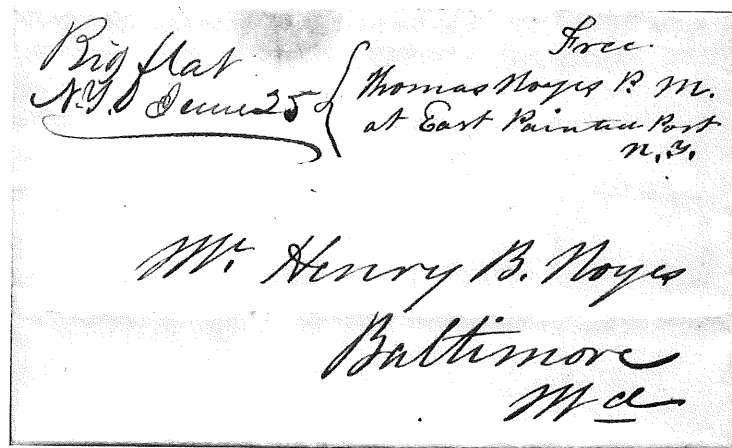 Big flat
N.Y. June 25
Free
Thomas Noyes P. M.
at East Painted Post
N. Y.
Mr. Henry B. Noyes
Baltimore
Md